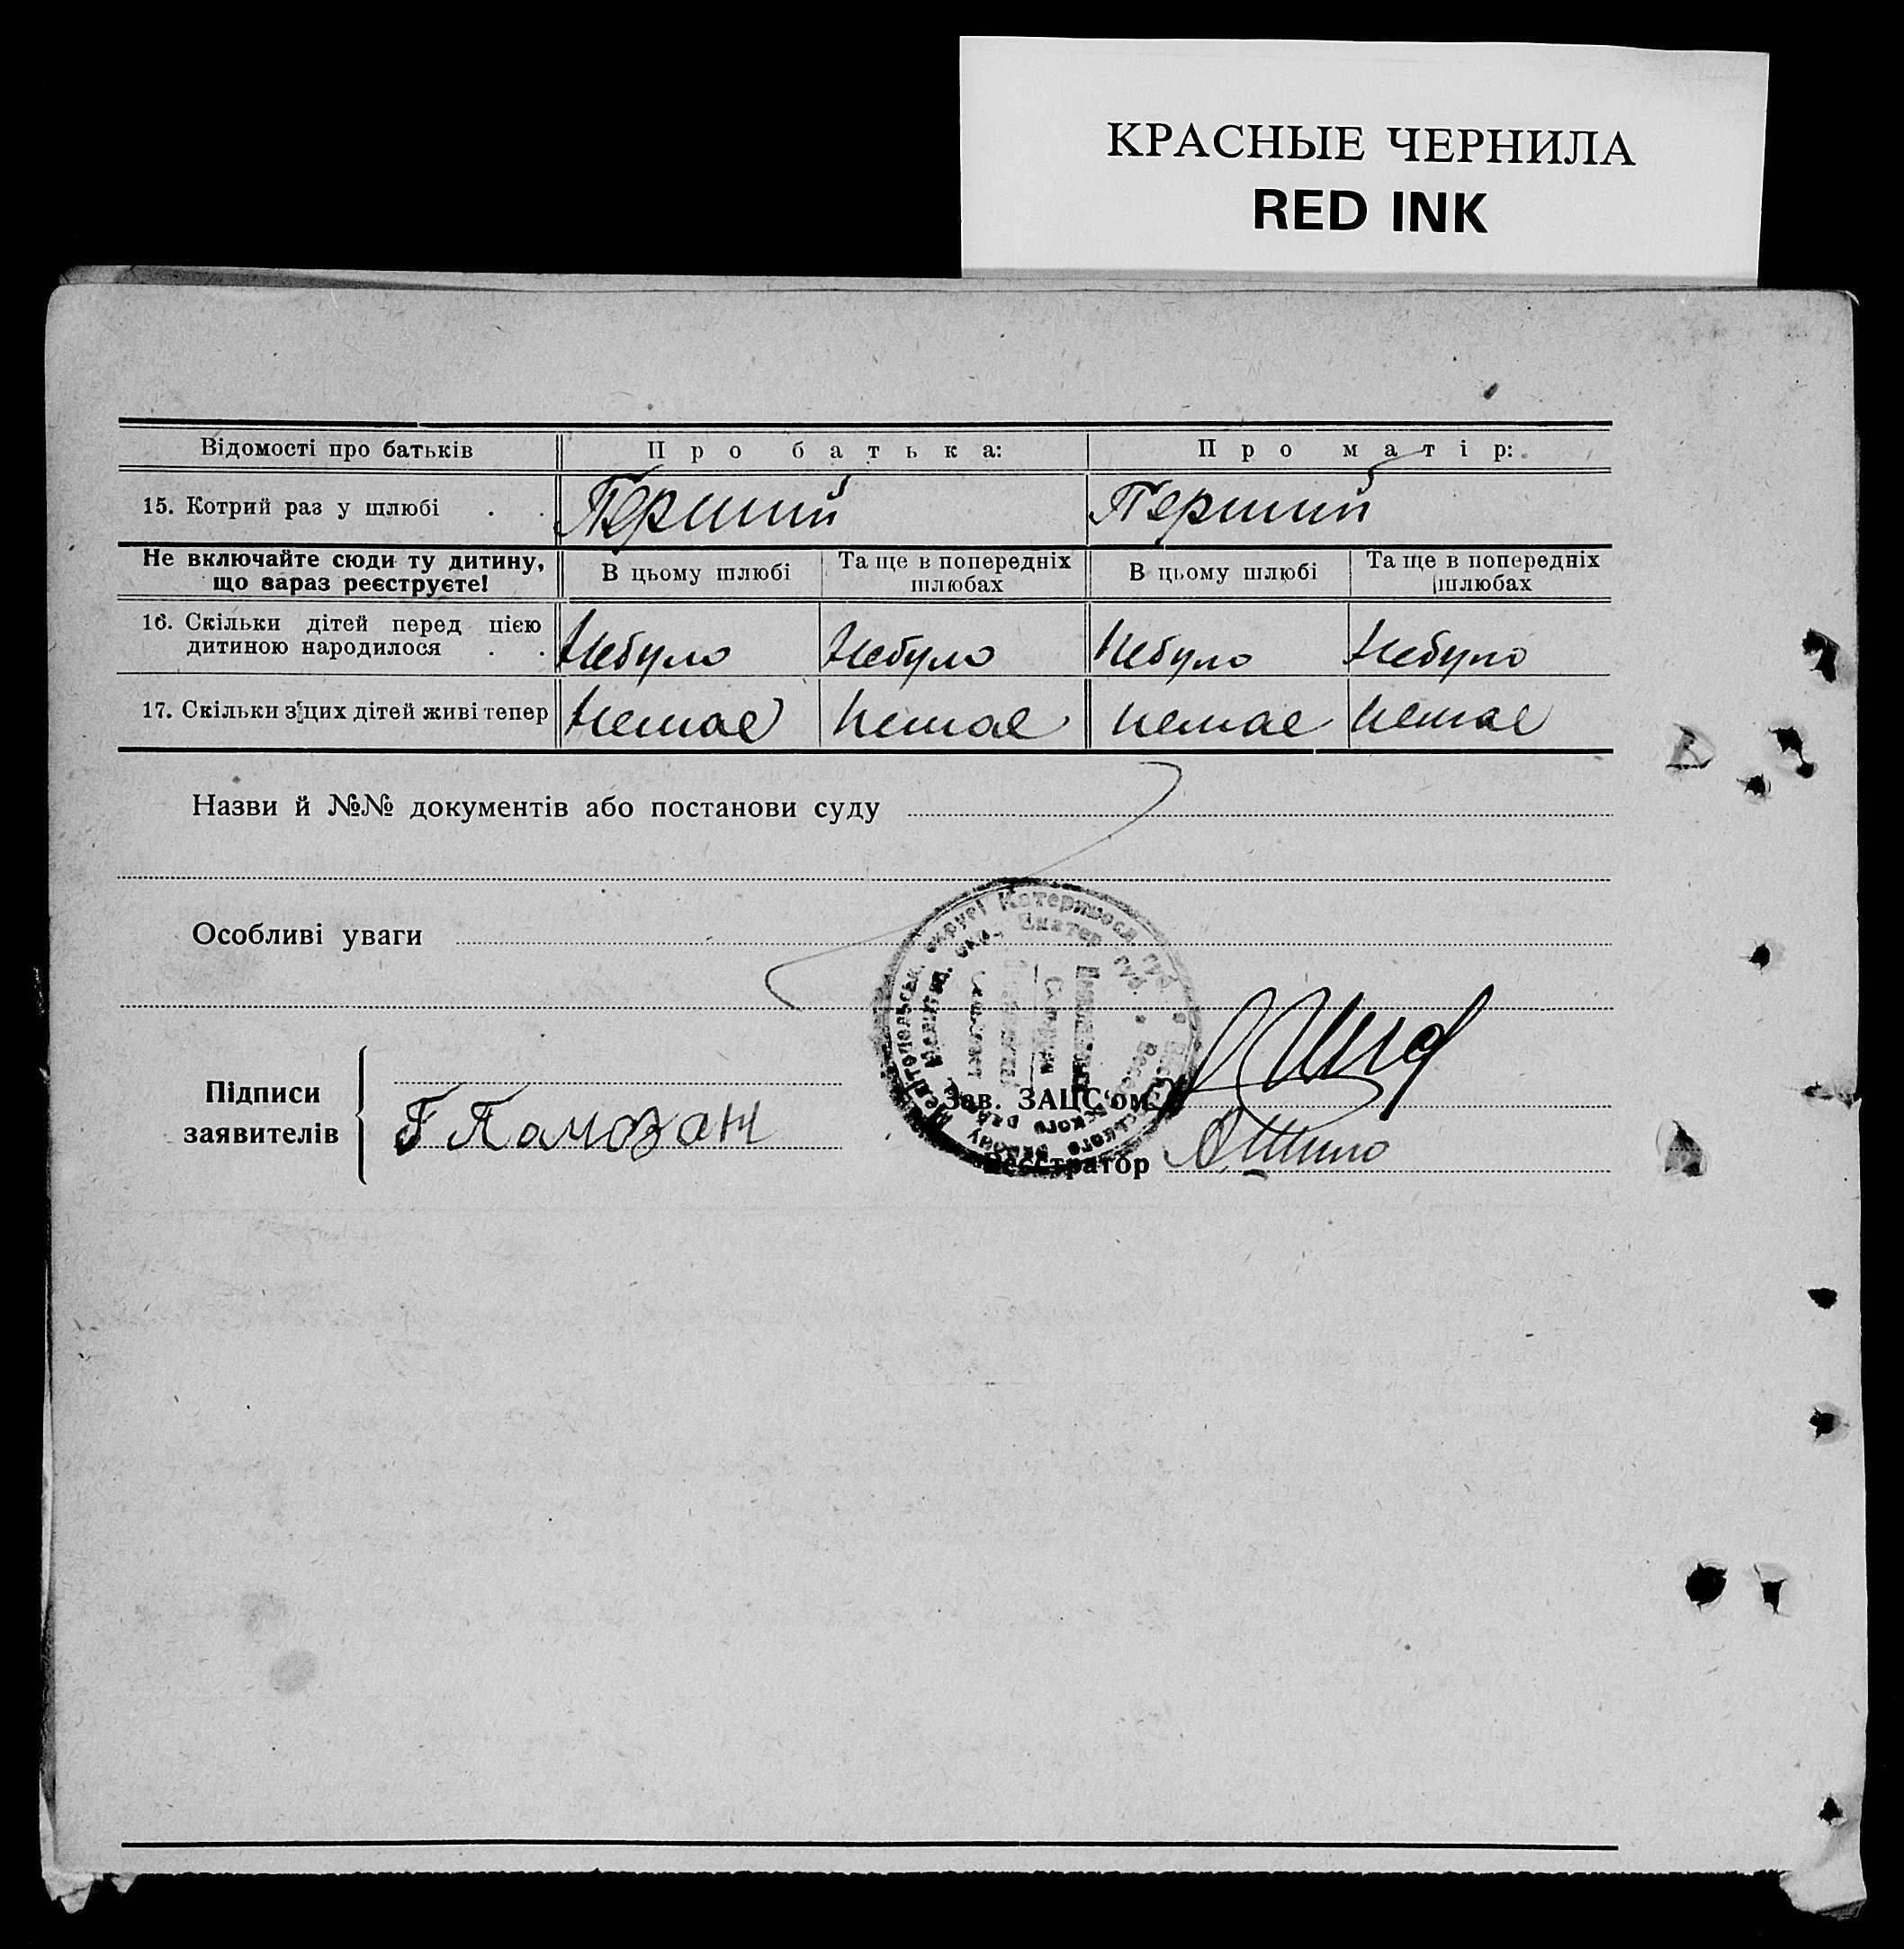 КРАСНЫЕ ЧЕРНИЛА
RED INK
Відомості про батьків Про батька: Про матір:
15. Котрий раз у шлюбі . . Перший Перший
Не включайте сюди ту дитину, що зараз реєструєте! В цьому шлюбі Та ще в попередніх шлюбах В цьому шлюбі Та ще в попередніх шлюбах
16. Скільки дітей перед цією дитиною народилося . . Небуло Небуло Небуло Небуло
17. Скільки з цих дітей живі тепер Немає Немає Немає Немає
Назви й №№ документів або постанови суду
Особливі уваги
Підписи заявителів
Зав. ЗАЦС'ом
Реєстратор